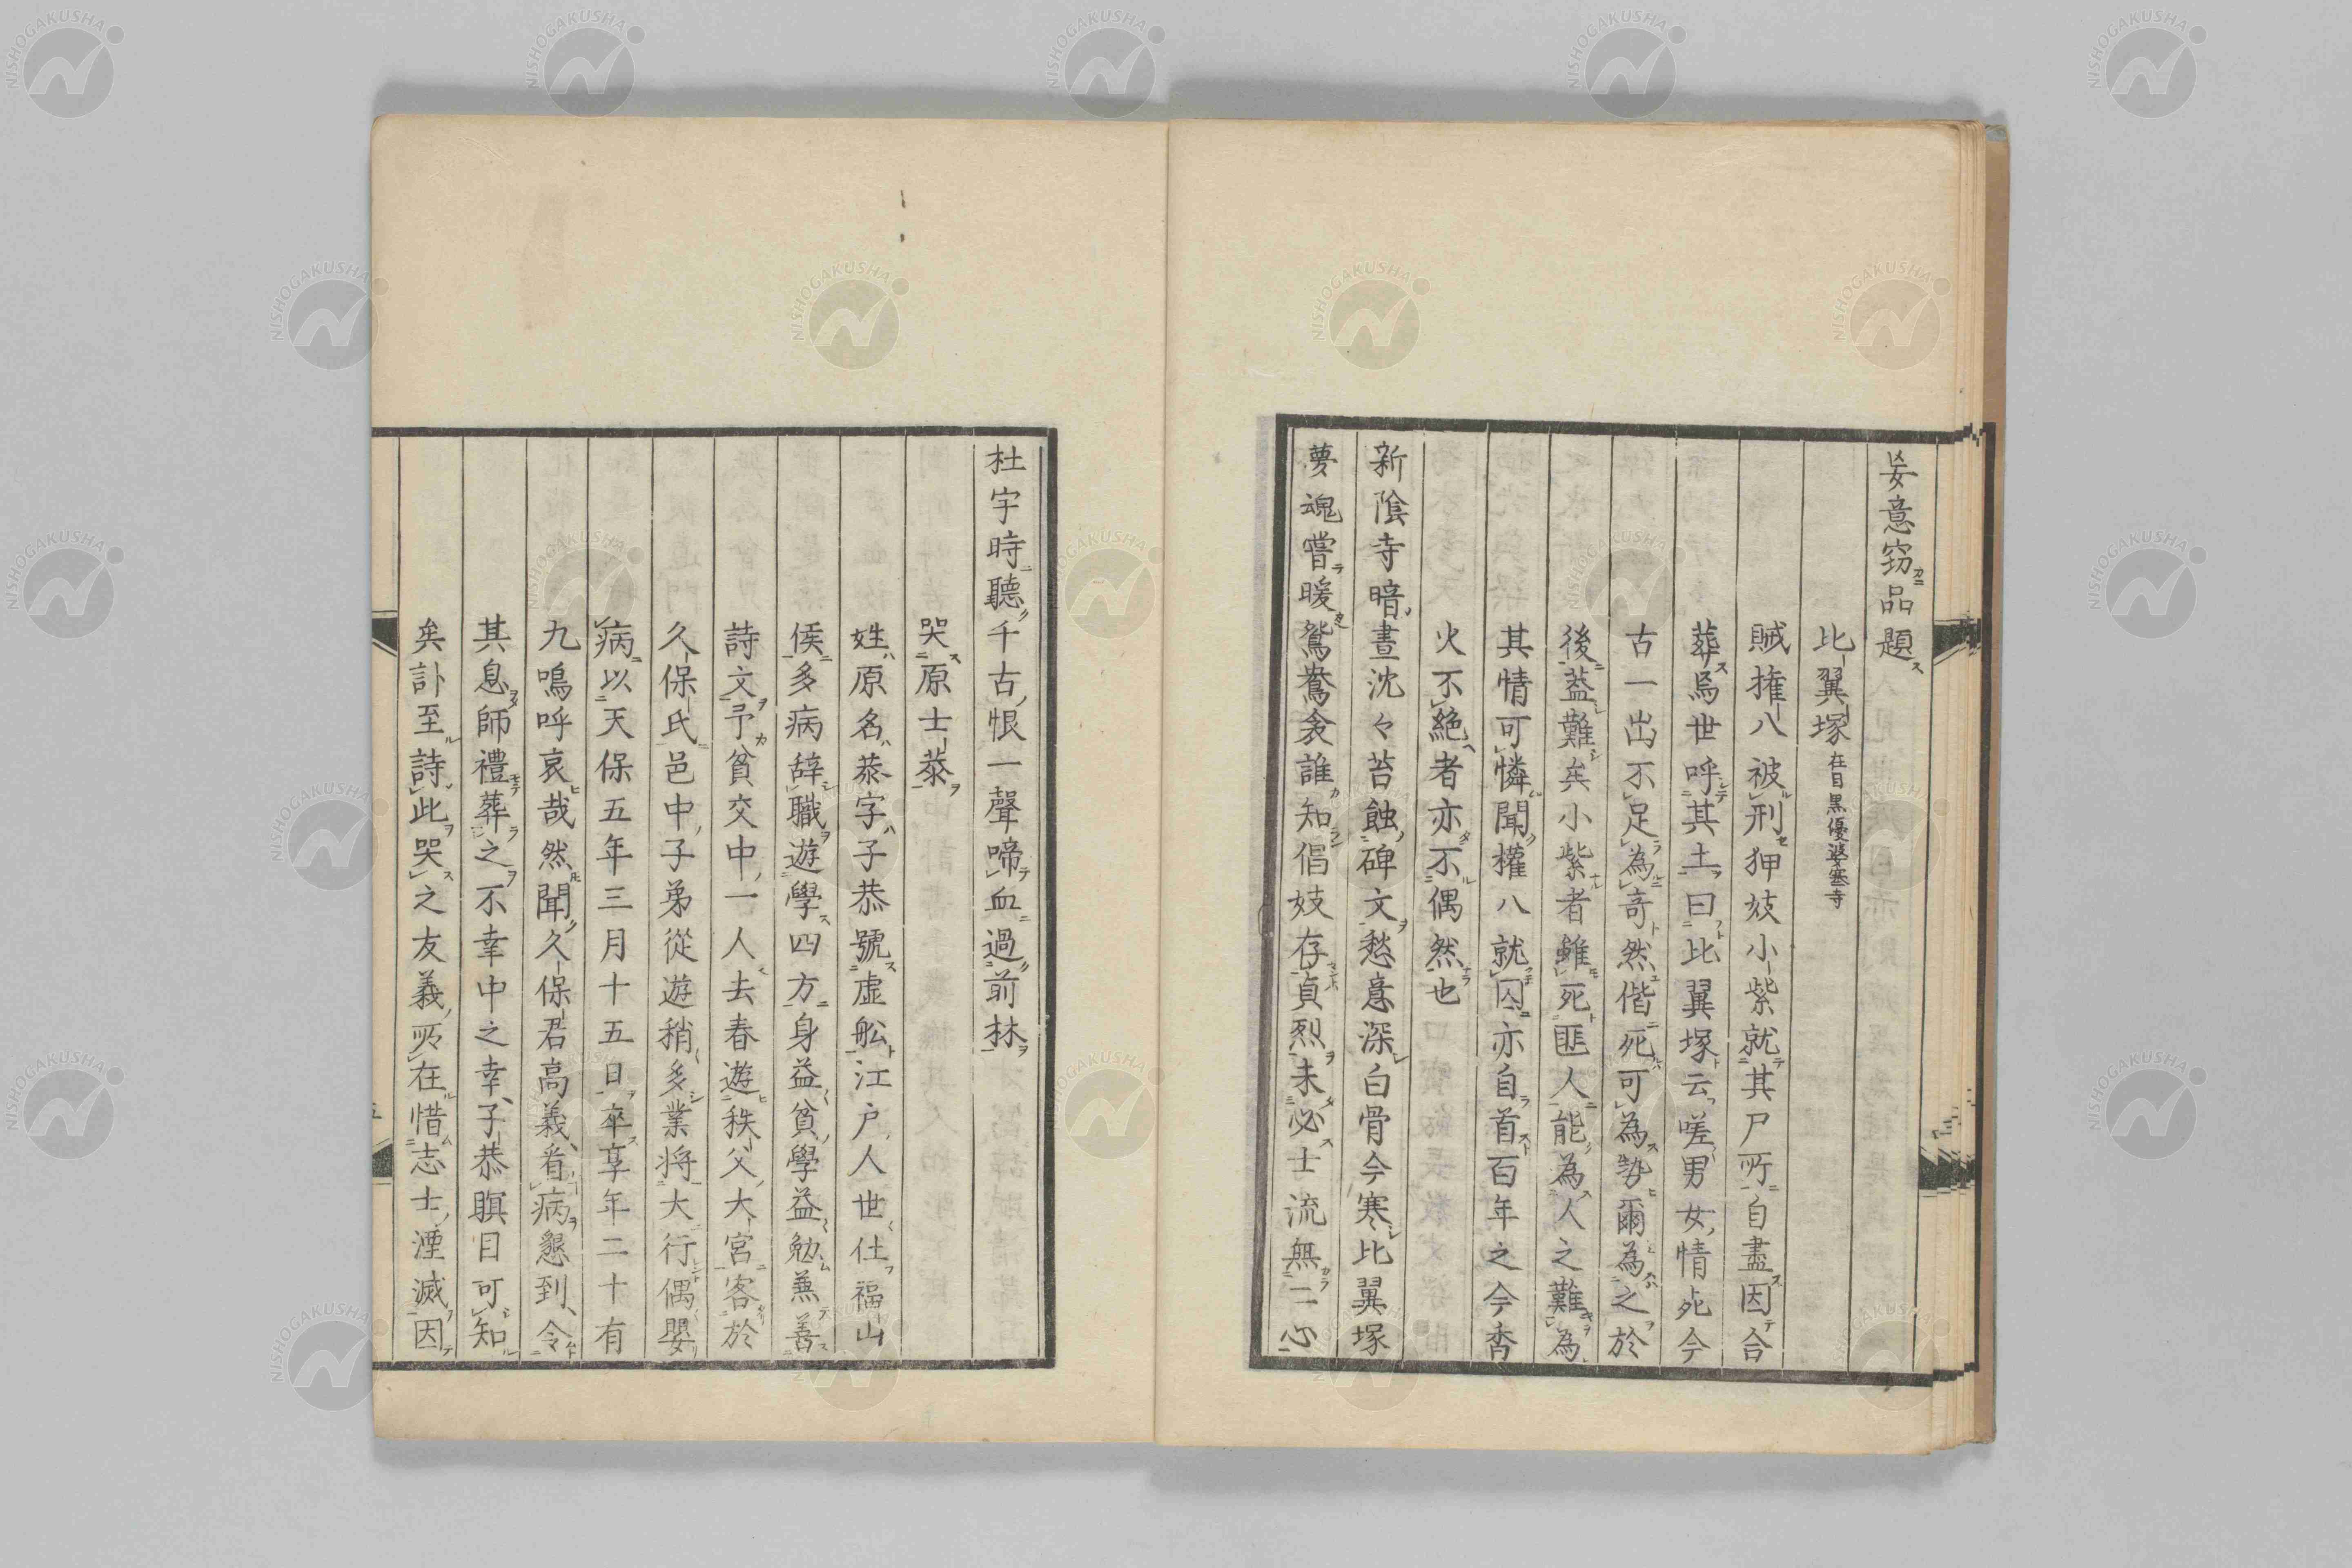 妄意窃品題
比翼塚在目黒優婆塞寺
賊権八被刑狎妓小紫就其尸所自盡因合
葬焉世呼其土曰比翼塚云嗟男女情死今
古一出不足為奇然偕死可為勢爾為之於
後葢難矣小紫者雖死匪人能為人之難為
其情可憐聞權八就囚亦自首百年之今香
火不絶者亦不偶然也
新陰寺暗晝沈々苔蝕碑文愁意深白骨今寒比翼塚
夢魂嘗暖鴛鴦衾誰知倡妓存貞烈未必士流無二心
杜宇時聽千古恨一聲啼血過前林
哭原士恭
姓原名恭字子恭號虚舩江户人世仕福山
侯多病辞職遊學四方身益貧學益勉兼善
詩文予貧交中一人去春遊秩父大宮客於
久保氏邑中子弟從遊稍多業将大行偶嬰
病以天保五年三月十五日卒享年二十有
九嗚呼哀哉然聞久保君高義看病懇到令
其息師禮葬之不幸中之幸子恭瞑目可知
矣訃至詩此哭之友義所在惜志士湮滅因
NISHOGAKUSHA